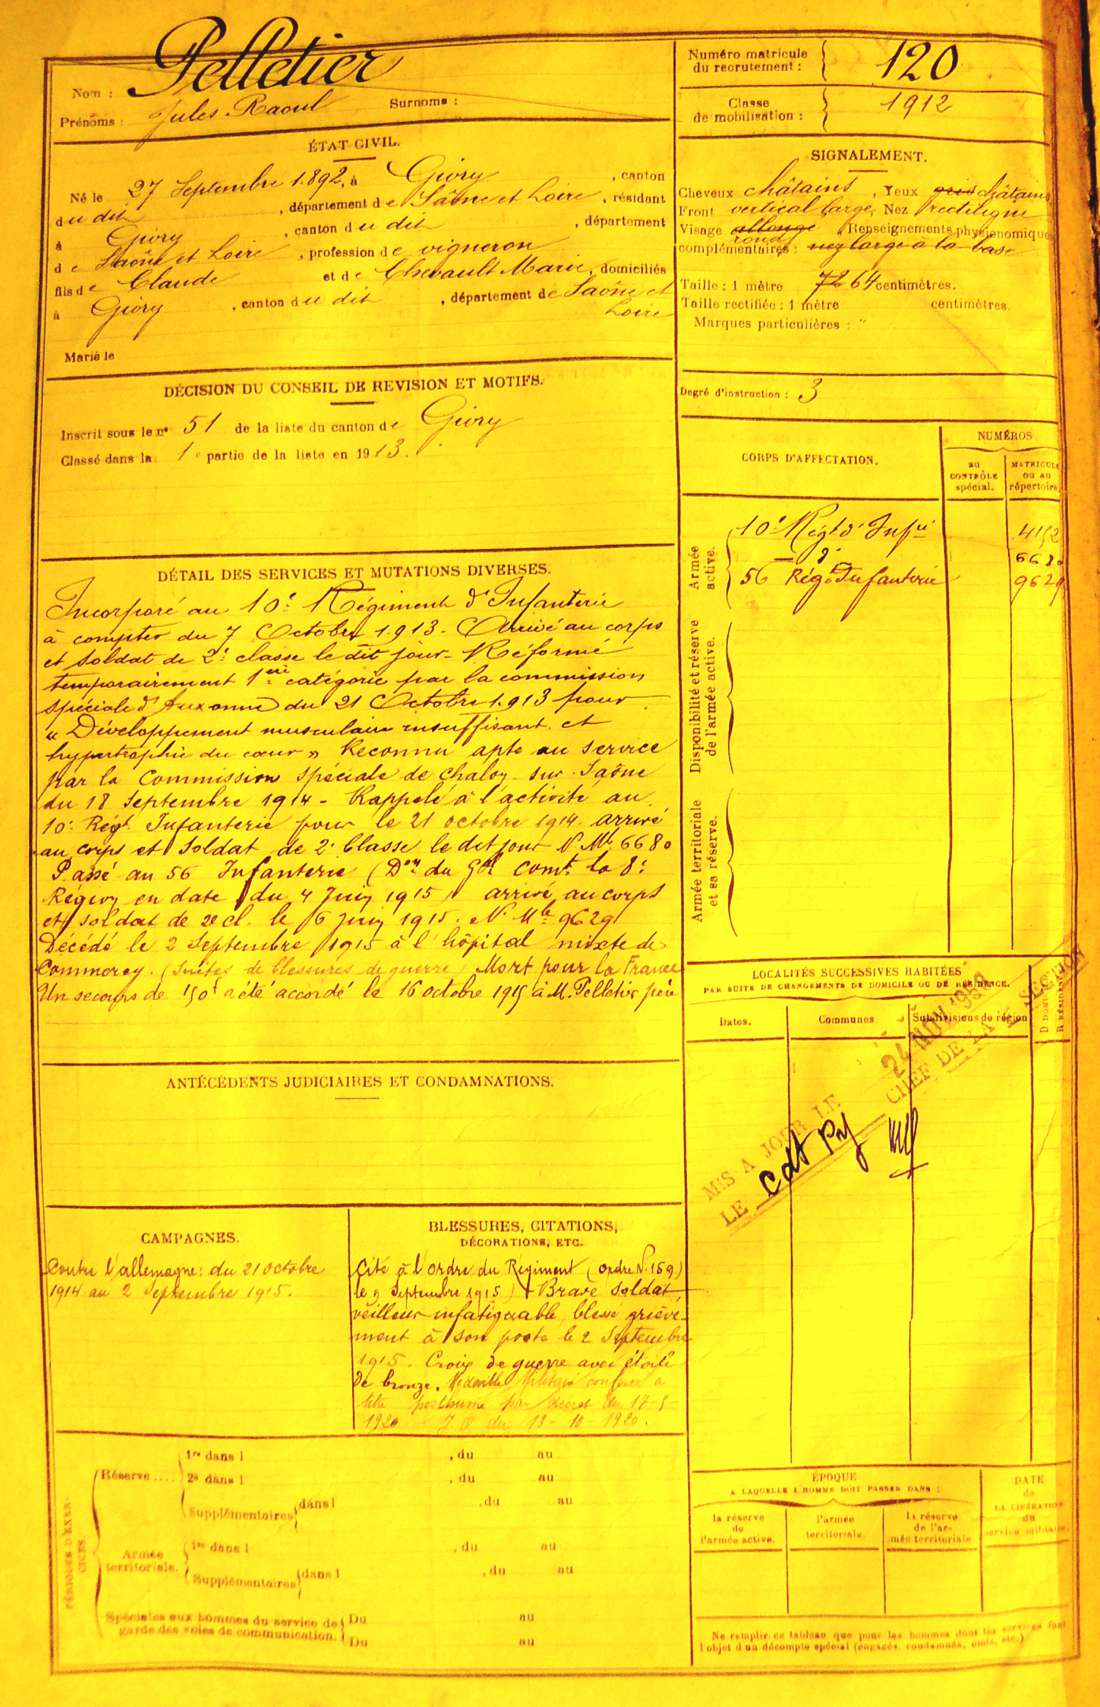 Nom : Pelletier
Prénoms : Jules Raoul Surnoms :
ÉTAT CIVIL.
Né le 27 Septembre 1892, à Givry, canton
du dit, département de Saône et Loire, résidant
à Givry, canton du dit, département
de Saône et Loire, profession de vigneron
fils de Claude et de Chevault Marie, domiciliés
à Givry, canton du dit, département de Saône et
Loire
Marié le
DÉCISION DU CONSEIL DE REVISION ET MOTIFS.
Inscrit sous le no 51 de la liste du canton de Givry
Classé dans la 1e partie de la liste en 1913.
DÉTAIL DES SERVICES ET MUTATIONS DIVERSES.
Incorporé au 10e Régiment d'Infanterie
à compter du 7 Octobre 1913. Arrivé au corps
et soldat de 2e classe le dit jour. Réformé
temporairement 1ère catégorie par la commission
spéciale d'Auxonne du 21 Octobre 1913 pour
"Développement musculaire insuffisant et
hypertrophie du cœur" Reconnu apte au service
par la Commission spéciale de Chalon-sur-Saône
du 18 Septembre 1914 - Rappelé à l'activité au
10e Régt Infanterie pour le 21 octobre 1914. arrivé
au corps et soldat de 2e Classe le dit jour No Mle 6680
Passé au 56 Infanterie (Don du Gal Comt la 8e
Région en date du 4 Juin 1915) arrivé au corps
et soldat de 2e cl. le 6 Juin 1915. No Mle 9629
Décédé le 2 Septembre 1915 à l'hôpital mixte de
Commercy. (Suites de blessures de guerre) Mort pour la France
Un secours de 150f a été accordé le 16 octobre 1915 à M. Pelletier père
ANTÉCÉDENTS JUDICIAIRES ET CONDAMNATIONS.
CAMPAGNES.
Contre l'allemagne: du 21 octobre
1914 au 2 Septembre 1915.
BLESSURES, CITATIONS,
DÉCORATIONS, ETC.
Cité à l'ordre du Régiment (ordre No 159)
le 9 Septembre 1915) Brave soldat
veilleur infatiguable, blessé griève-
ment à son poste le 2 Septembre
1915. Croix de guerre avec étoile
de bronze. Médaille Militaire conférée à
titre posthume par décret du 17-5-
1920 J O du 13-10-1920.
PÉRIODES D'EXERCICES.
Réserve .... 1re dans l , du au
2e dans l , du au
Supplémentaires dans l , du au
Armée territoriale. 1re dans l , du au
Supplémentaires dans l , du au
Spéciales aux hommes du service de Du au
garde des voies de communication. Du au
Numéro matricule
du recrutement : 120
Classe
de mobilisation : 1912
SIGNALEMENT.
Cheveux châtains, Yeux gris châtains
Front vertical large, Nez rectiligne
Visage allongé rond, Renseignements physionomiques
complémentaires : nez large à la base
Taille : 1 mètre 72 64 centimètres.
Taille rectifiée : 1 mètre centimètres.
Marques particulières : "
Degré d'instruction : 3
CORPS D'AFFECTATION.
NUMÉROS
au
CONTRÔLE
spécial.
MATRICULE
OU AU
répertoire.
Armée
active.
10e Régt d'Infie 4152
— do — 6680
56 Régt Infanterie 9629
Disponibilité et réserve
de l'armée active.
Armée territoriale
et sa réserve.
LOCALITÉS SUCCESSIVES HABITÉES
PAR SUITE DE CHANGEMENTS DE DOMICILE OU DE RÉSIDENCE.
Dates. Communes Subdivisions de région
MIS A JOUR LE 24 NOV 1938
LE Cdt CHEF DE LA SECTION
ÉPOQUE
A LAQUELLE L'HOMME DOIT PASSER DANS :
la réserve
de
l'armée active.
l'armée
territoriale.
la réserve
de l'ar-
mée territoriale
DATE
de
LA LIBÉRATION
du
service militaire.
Ne remplir ce tableau que pour les hommes dont les services font
l'objet d'un décompte spécial (engagés, condamnés, omis, etc.)